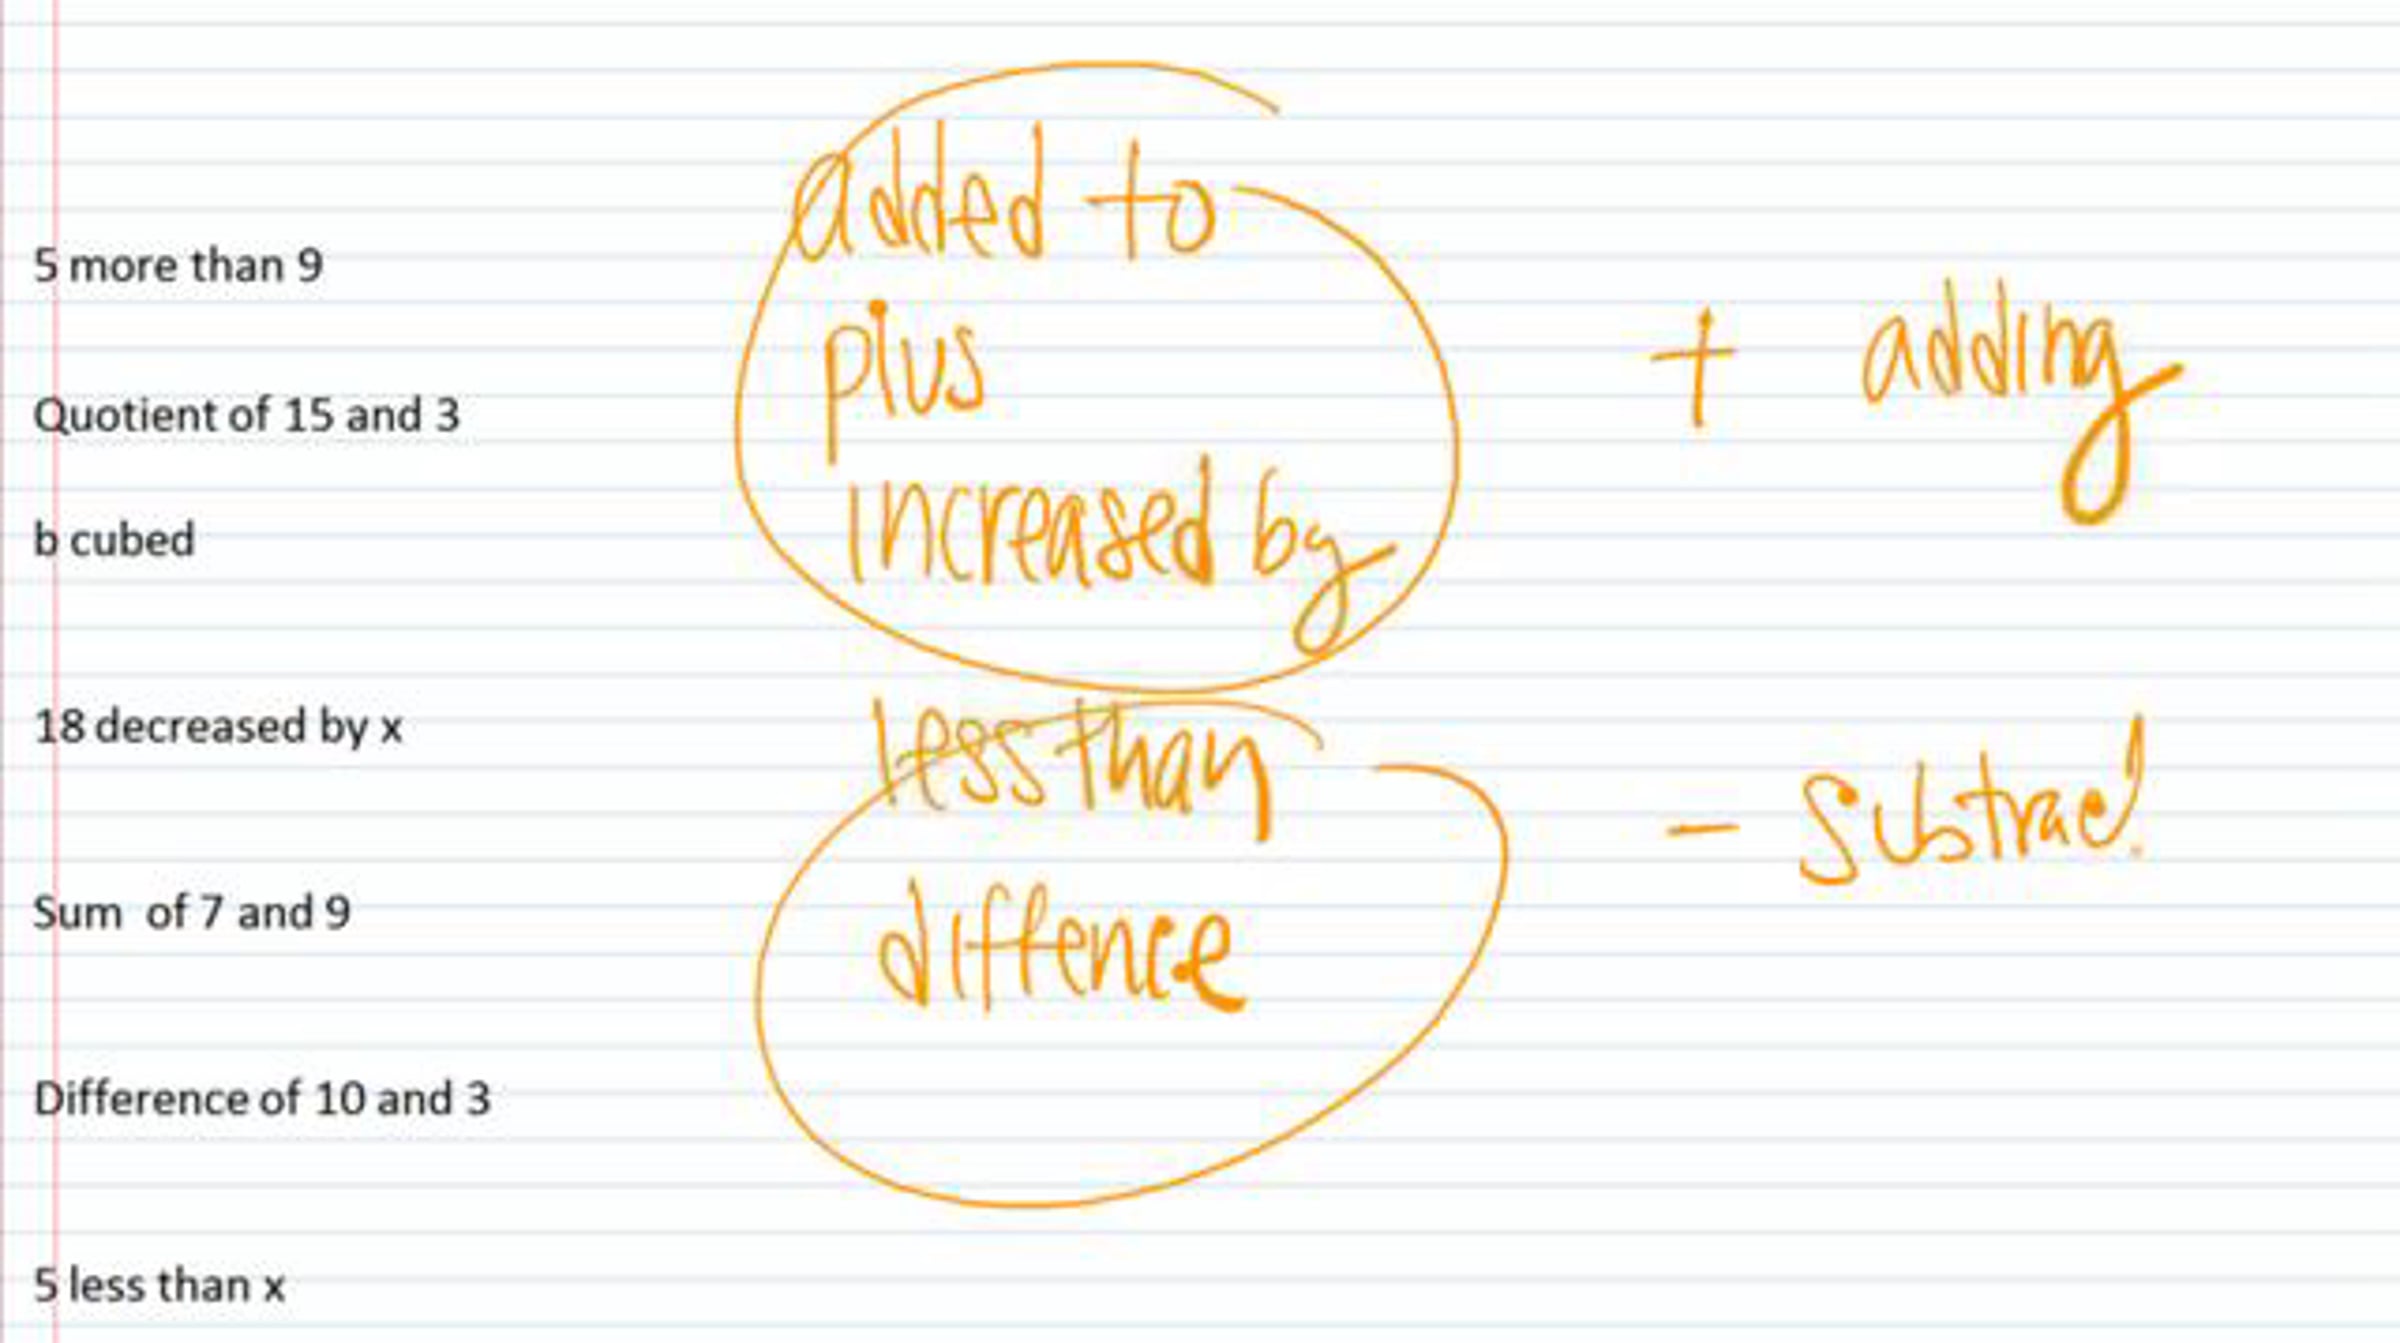 added to
5 more than 9
plus
+ adding
Quotient of 15 and 3
increased by
b cubed
18 decreased by x
less than
- Subtract
Sum of 7 and 9
diffence
Difference of 10 and 3
5 less than x